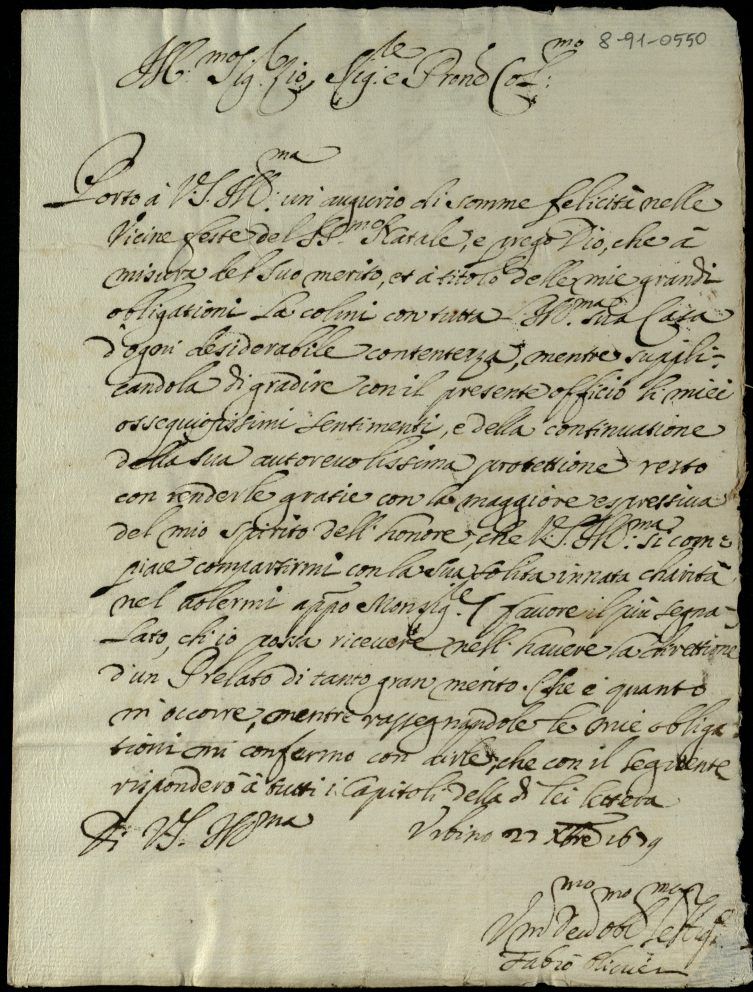 8-91-0550
Ill:mo Sig.r Zio, Sig.re e Prone Col:mo
Porto à V.S. Ill:ma un'augurio di somme felicità nelle
vicine feste del SS.mo Natale, e prego Dio, che à
misura del suo merito, et à titolo delle mie grandi
obligationi La colmi con tutta l'Ill:ma sua Casa
d'ogni desiderabile contentezza, mentre suppli-
candola di gradire con il presente officio li miei
ossequiosissimi sentimenti, e della continuatione
della sua autorevolissima protettione resto
con renderle gratie con la maggiore espressiva
del mio spirito dell'honore, che V.S. Ill:ma si com=
piace compartirmi con la sua solita innata charità
nel appo Monsig.re favore il più segna-
lato, ch'io possa ricevere nell'havere la direttione
d'un Prelato di tanto gran merito. Che è quanto
m'occorre, mentre rassegnandole le mie obliga-
tioni mi confermo con dirle, che con il seguente
risponderò à tutti i Capitoli della di lei lettera
Di VS. Ill:ma Urbino 27 Xbre 1679
Um:mo Dev:mo obl:mo